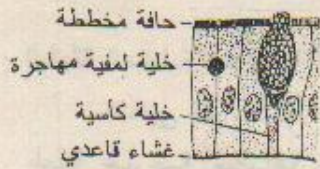 حافة مخططة
خلية لمفية مهاجرة
خلية كأسية
غشاء قاعدي